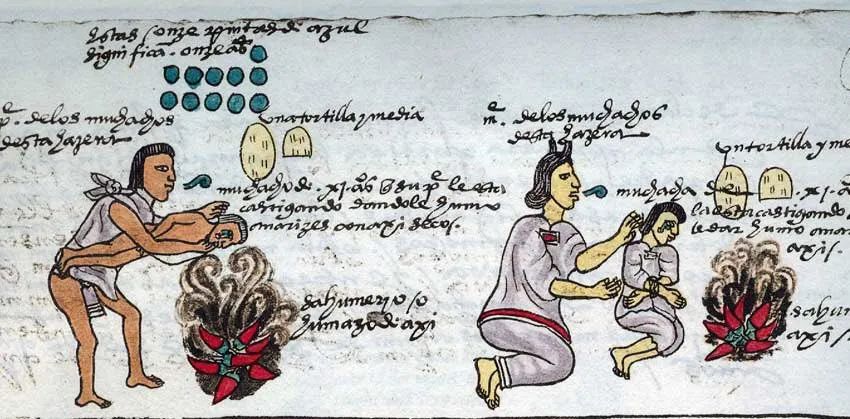 estas onze pintas de azul
significan onze aºs
pº de los muchachos
desta hazera
una tortilla y media
muchacho de .xi. aºs q su pº le esta
castigando dandole humo
a narizes con axi secos.
sahumerio so
humazo de axi
mº de los muchachos
desta hazera
un tortilla y me
muchacha de .xi. a
la esta castigando
le dar humo a nar
axis.
sahum
axis